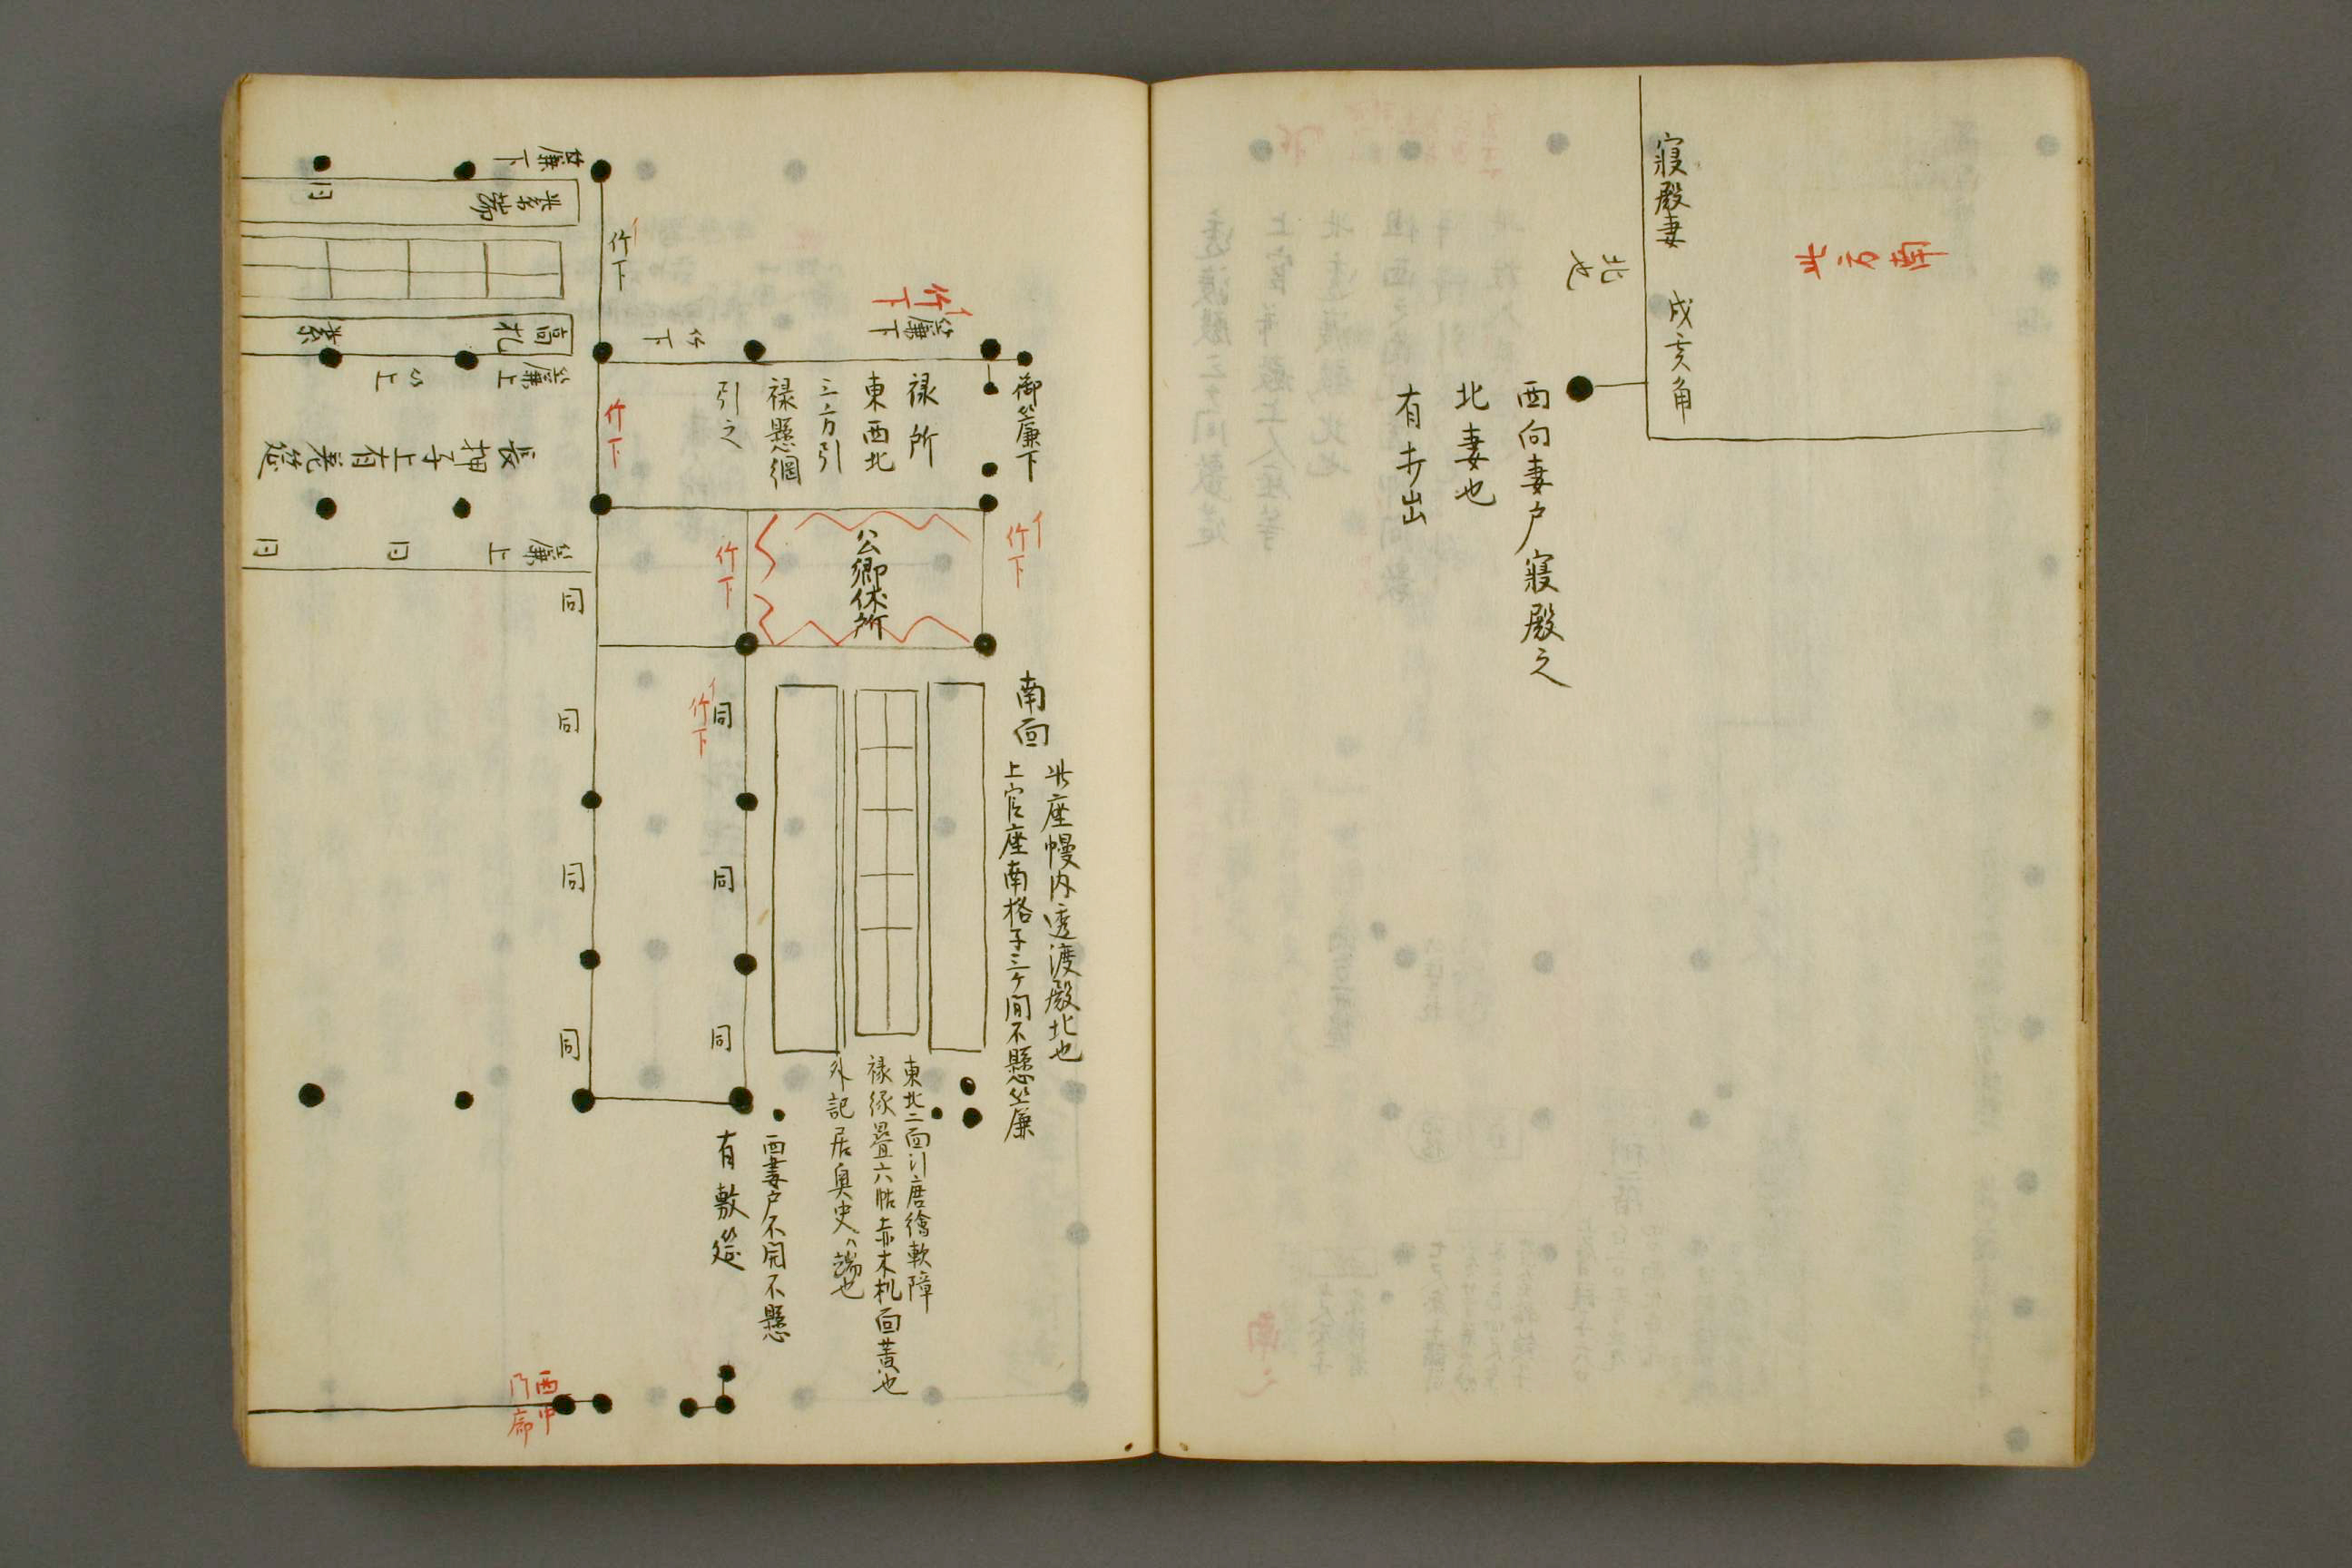 寝殿妻　戌亥角
北也
西向妻戸寝殿之
北妻也
有打出
御簾下
竹下
簾下
禄所
東西北
三方引
禄懸綱
引之
竹下
竹下
竹下
竹下
公卿休所
竹下
竹下
同
同
同
南面
此座幔内透渡殿北也
上官座南格子三ケ間不懸簾
東北二面引唐繪軟障
禄縁畳六帖赤木机面黄也
外記居奥史ハ端也
西妻戸不開不懸
有敷筵
簾下
同
簾上
長押子上有差筵
簾上
同
同
同
同
同
同
西中
乃廊